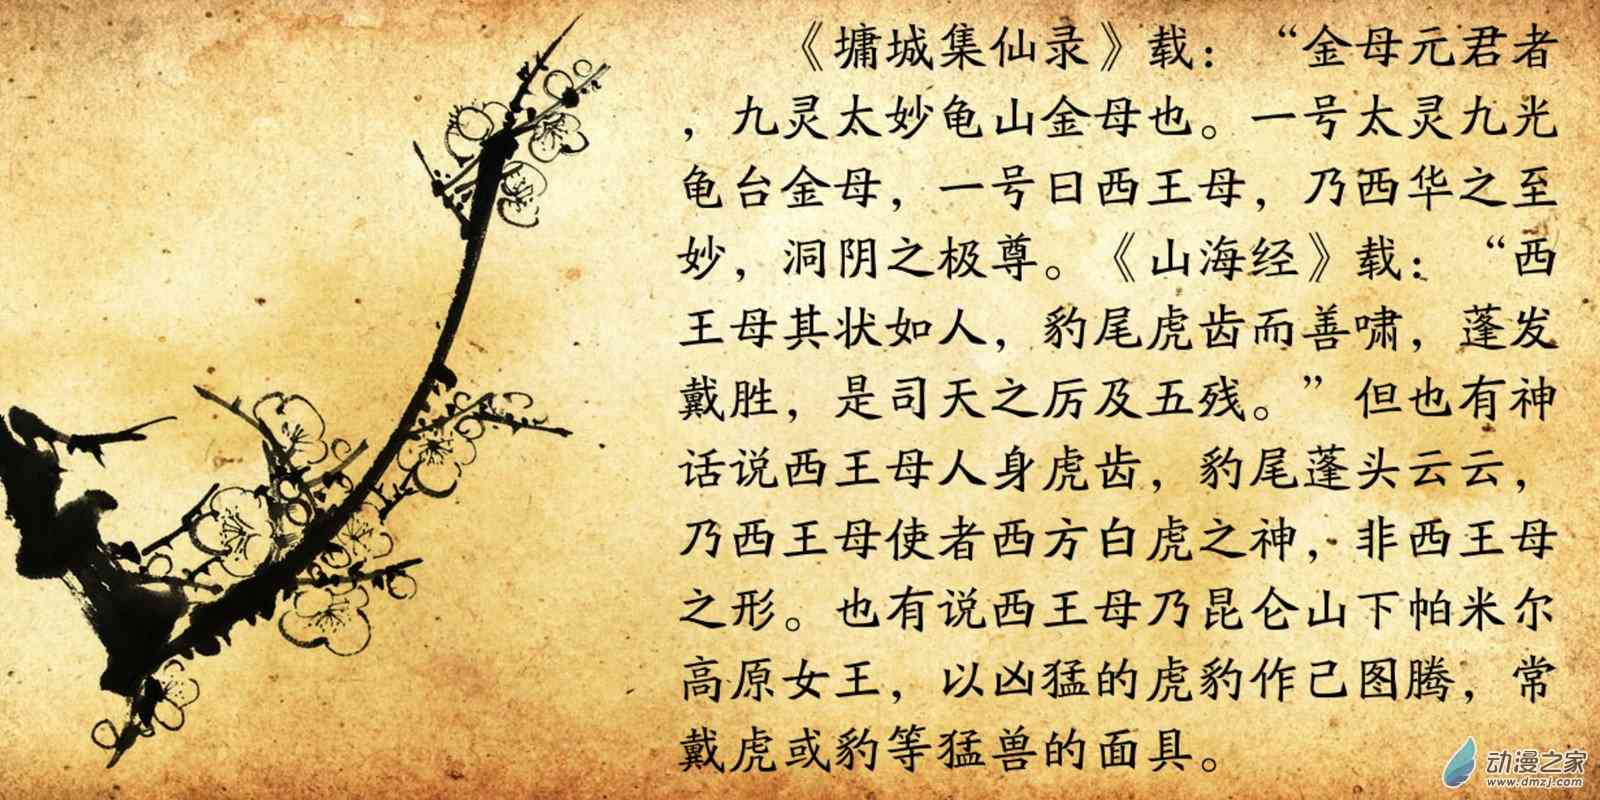 《墉城集仙录》载：“金母元君者
，九灵太妙龟山金母也。一号太灵九光
龟台金母，一号曰西王母，乃西华之至
妙，洞阴之极尊。《山海经》载：“西
王母其状如人，豹尾虎齿而善啸，蓬发
戴胜，是司天之厉及五残。”但也有神
话说西王母人身虎齿，豹尾蓬头云云，
乃西王母使者西方白虎之神，非西王母
之形。也有说西王母乃昆仑山下帕米尔
高原女王，以凶猛的虎豹作己图腾，常
戴虎或豹等猛兽的面具。
动漫之家
www.dmzj.com